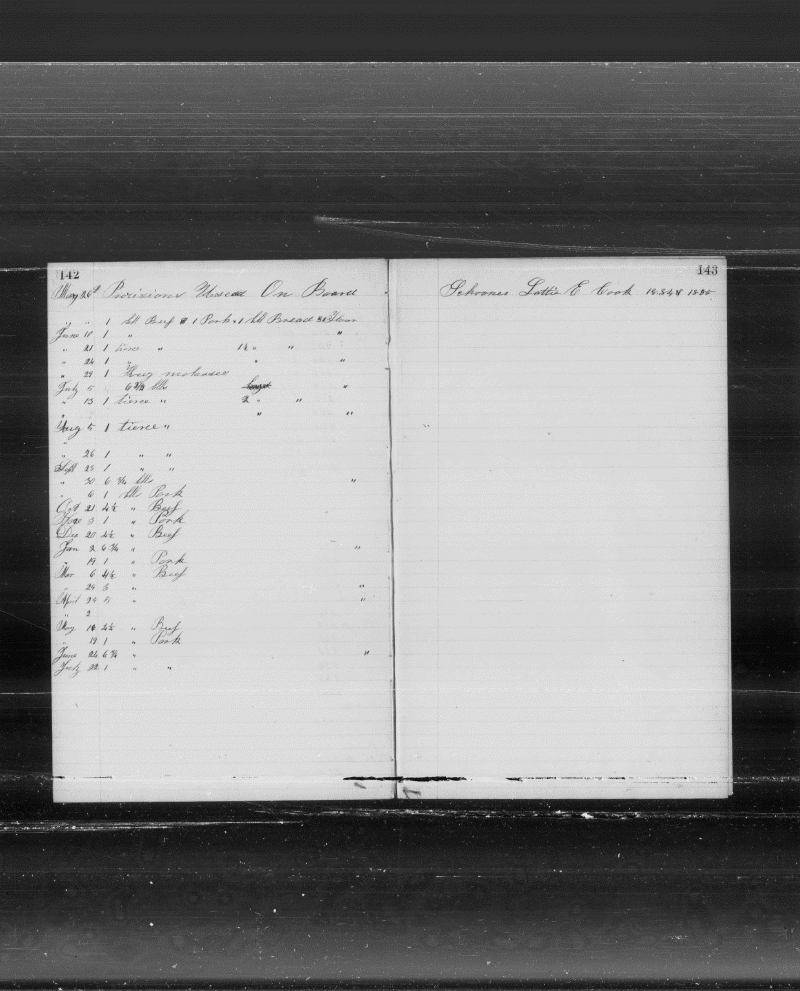 142
May 28th Provisions Used On Board
" " 1 bbl Beef 1 Pork 1 bbl Bread Flour
June 1 " "
" 21 1 tierce " 1½ " "
" 24 1 " " "
" 29 1 Keg molasses
July 5 6 bbls "
" 13 1 tierce " 2 " "
" " "
Aug 5 1 tierce "
"
" 26 1 " "
Sept 25 1 " "
" 30 6 ¾ bbls "
" 6 1 bbls Pork
Oct 21 4½ " Beef
3 1 " Pork
Dec 20 4½ " Beef
Jan 2 6¾ " "
" 19 1 " Pork
Mar 6 4½ " Beef
" 24 3 " "
April 24 5 " "
" 2
May 4½ " Beef
" 19 1 " Pork
June 24 6¾ " "
July 22 1 " "
143
Schooner Lottie E Cook 1884 &